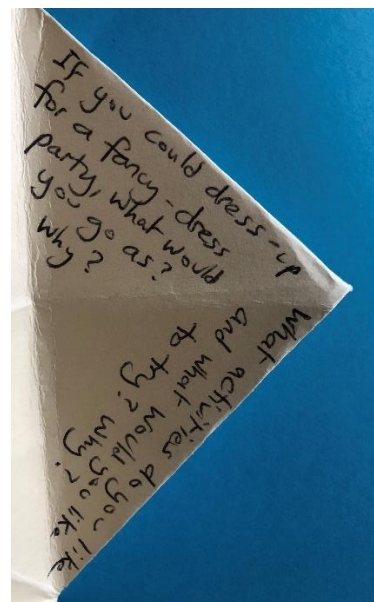 If you could dress-up
for a fancy-dress
party, what would
you go as?
Why?
What activities do you like
and what would you like
to try? Why?